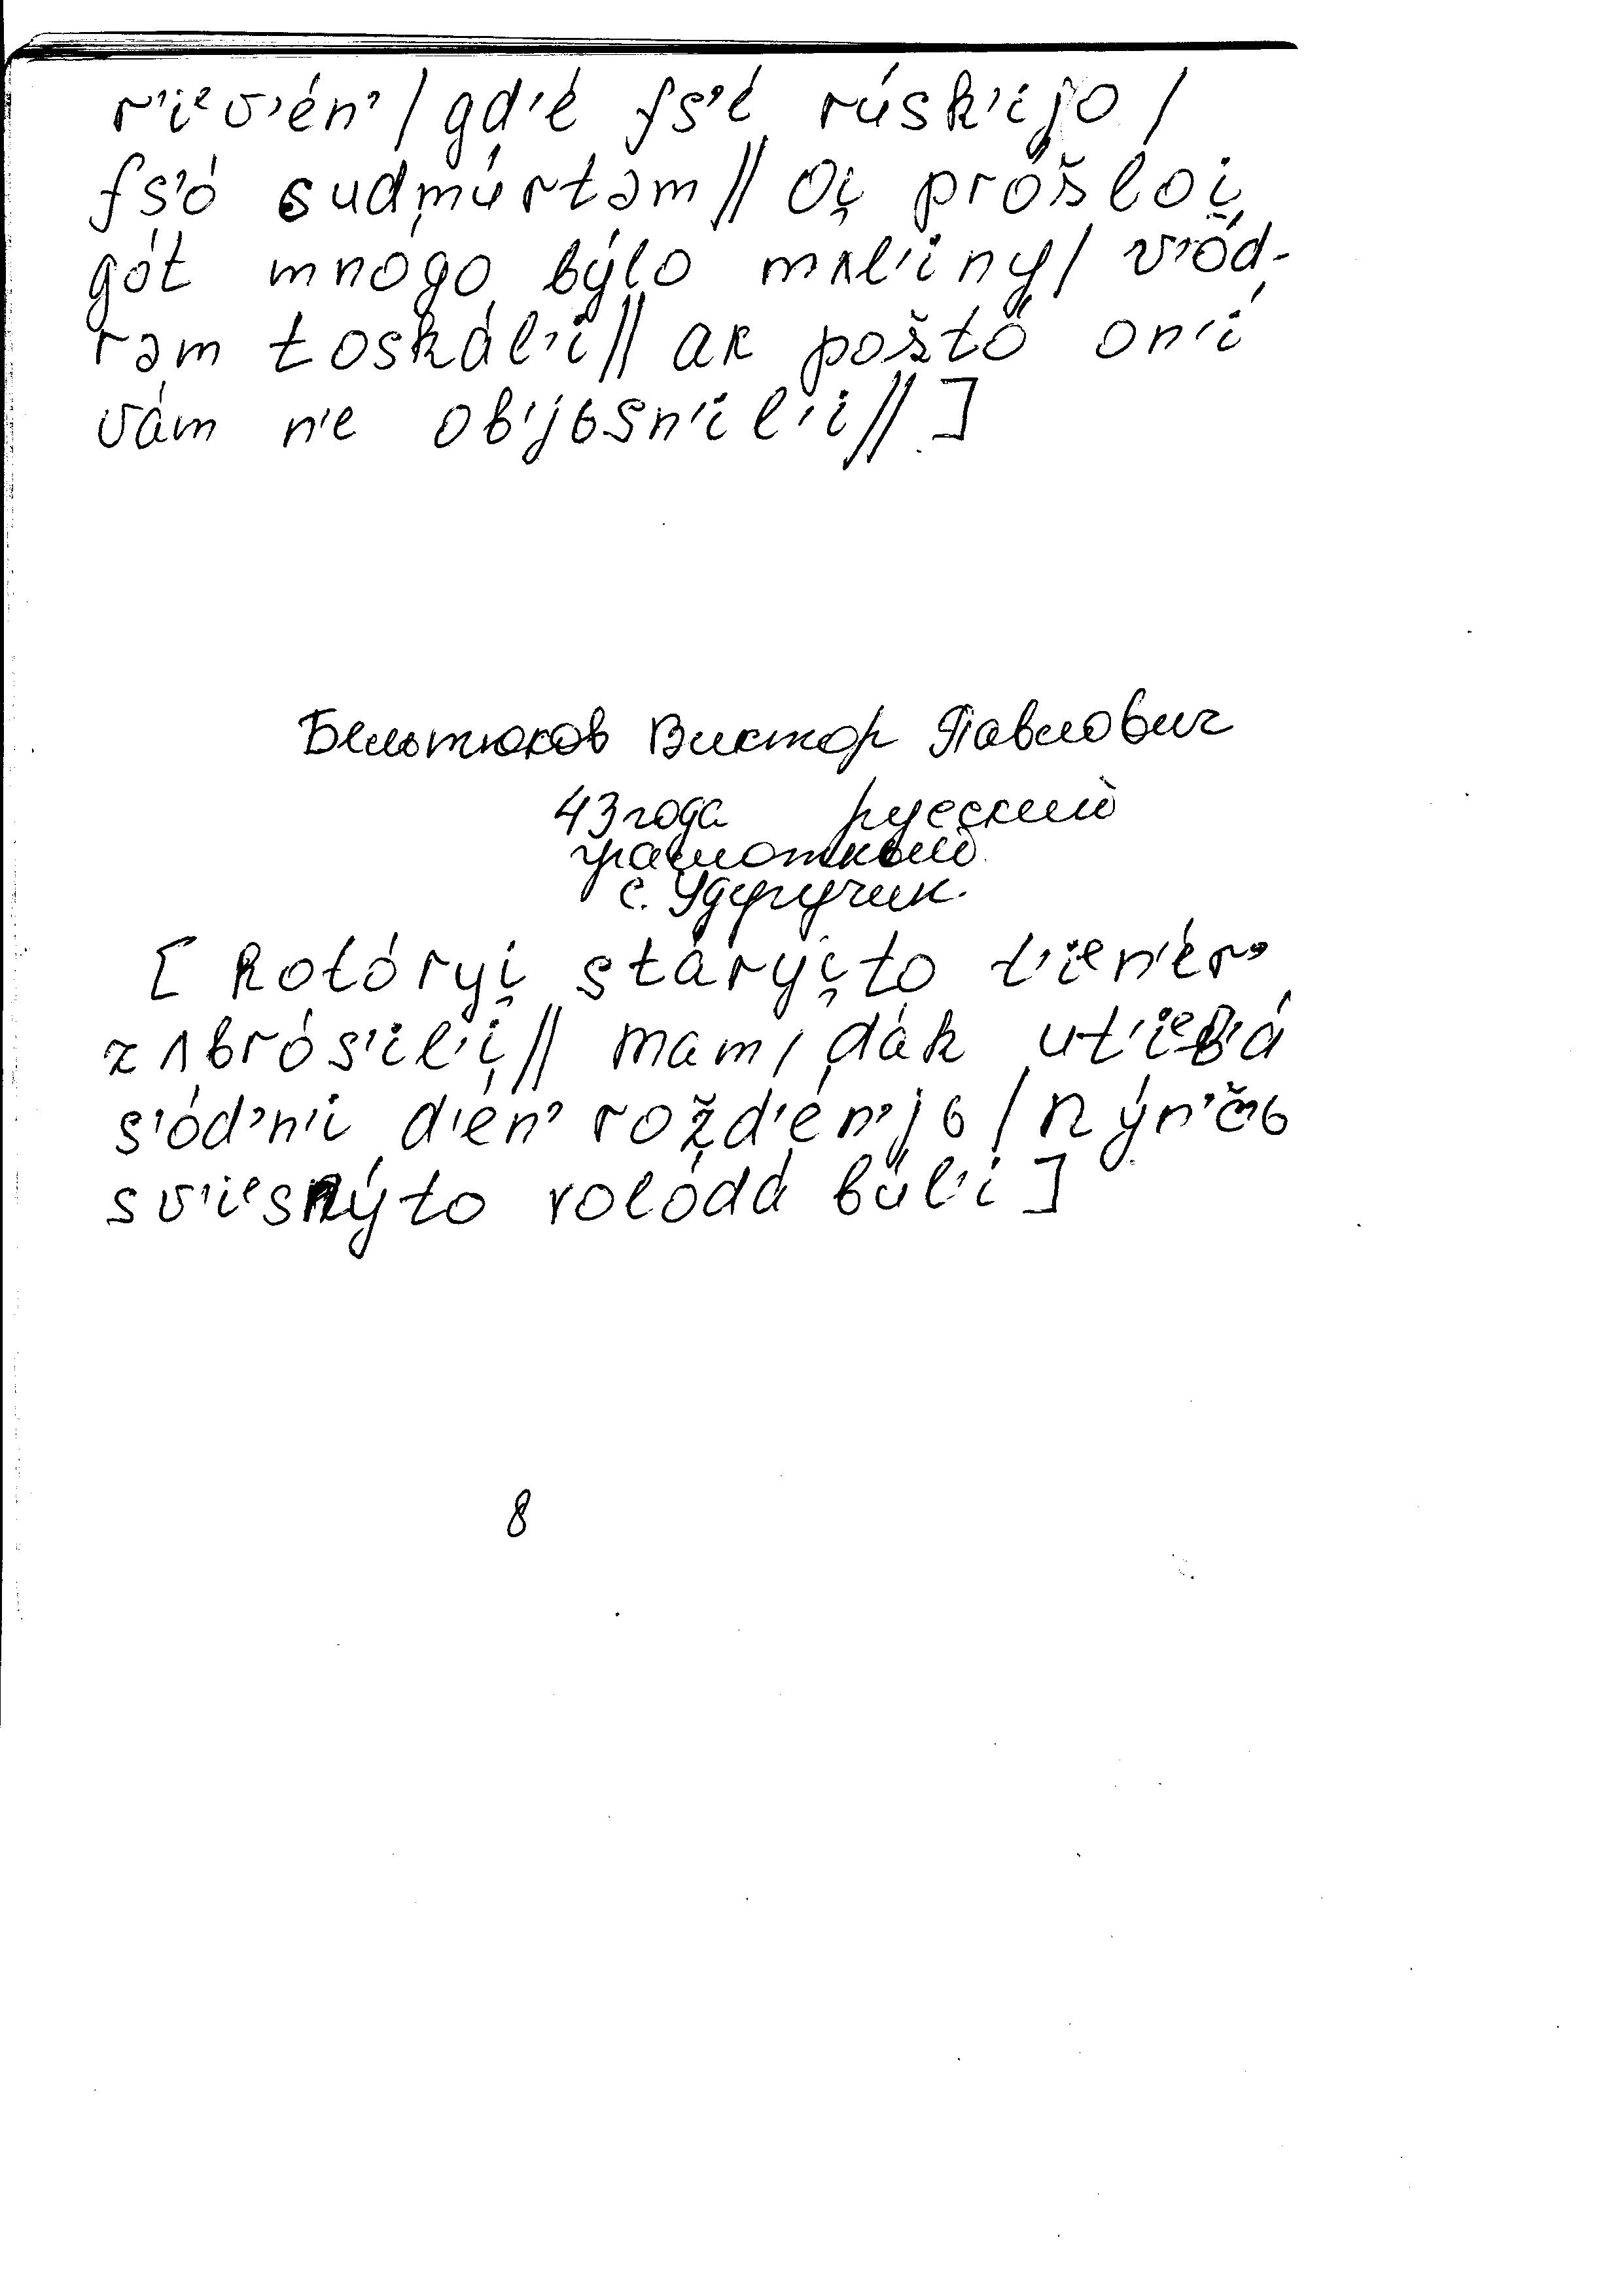 r'iᵉv'én' / gd'é fs'é rúsk'ijo /
fs'ó sudmúrtəm // Oi̯ próšloi̯
gót mnógo býlo mʌl'iny / v'ód-
rəm toskál'i // ak pošto on'í
vám n'e ob'jьsn'íl'i // ]
Бельтюков Виктор Павлович
43 года русский
грамотный
с. Удугучин.
[ kotóryi̯ stáryi̯to t'iᵉn'ér'
zʌbrós'il'i̯ // mam, dák ut'iᵉb'á
s'ód'n'i d'én' rožd'én'jь / nýn'čь
sv'iᵉsnýto xolódá býl'i ]
8